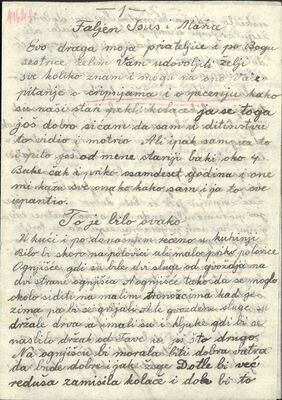 - 1 -
Faljen Isus i Marija
Evo draga moja prijateljice i po Bogu
sestrice želim Vam udovoljiti želji
sve koliko znam i mogu na
pitanje o cripnjama i o pečenju kako
su naši stari pekli kolače ja se toga
još dobro sićam da sam u ditinstvu
to vidio i motrio Ali ipak sam za to
pito još od mene stariji baki oko 4
Bake čak i priko osamdeset godina i one
mi kažu sve onako kako sam i ja to sve
upantio.
To je bilo ovako
U kući i po donašnjem rečeno u kuhinji
Bilo bi skoro na polovici ali malo priko polovice
Ognjišće gdi su bile dvi sluge od gvozdja na
dvi strane ognjišća A ognjišće tako da se moglo
okolo siditi na malim tronožcima kad je
zima pa bi se grijali te gvozdene sluge su
držale drva a imali su i kljuke gdi bi se
naslilo držak od Tave pa još što drugo.
Na ognjišću bi morala biti dobra vatra
da bude dobre i jake žege Dotle bi već
reduša zamisila kolače i dok bi to